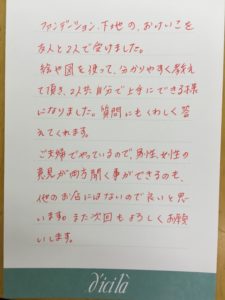 ファンデーション、下地の、おけいこを
友人と2人で受けました。
絵や図を使って、分かりやすく教え
て頂き、2人共自分で上手にできる様
になりました。質問にもくわしく答
えてくれます。
ご夫婦でやっているので、男性、女性の
意見が両方聞く事ができるのも、
他のお店にはないので良いと思
います。また次回もよろしくお願
いします。
dicila